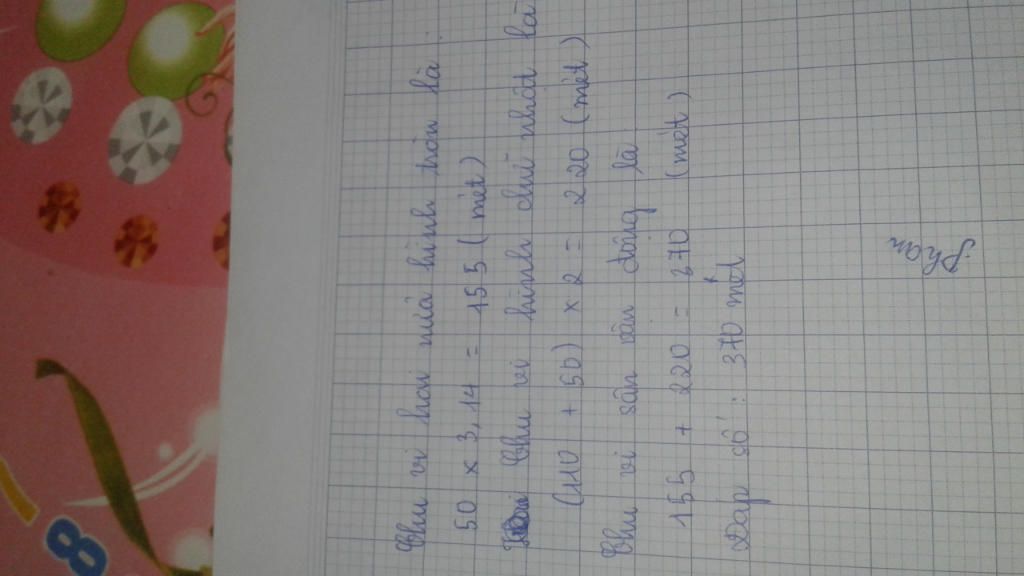 Chu vi hai nửa hình tròn là:
50 x 3,14 = 155 (mét)
Chu vi hình chữ nhật là
(110 + 50) x 2 = 220 (mét)
Chu vi sân vân động là
155 + 220 = 370 (mét)
Đáp số: 370 mét
Phan
8